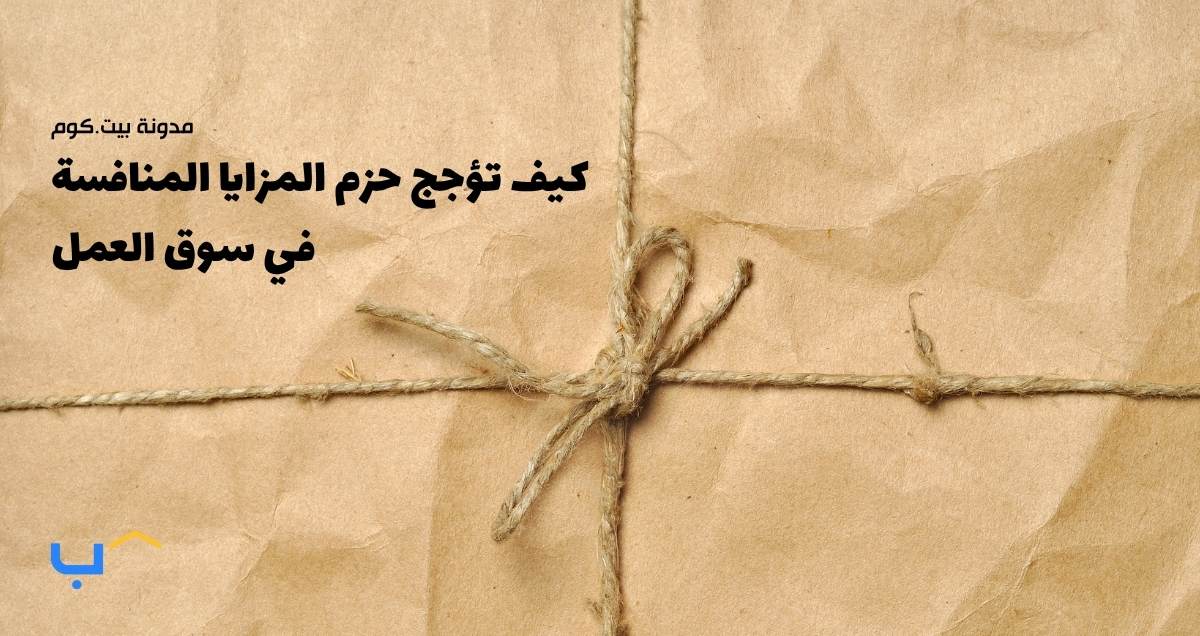 مدونة بيت.كوم
كيف تؤجج حزم المزايا المنافسة
في سوق العمل
ب